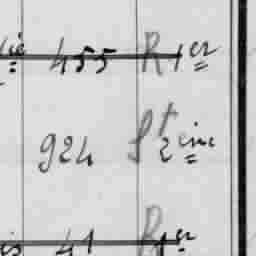 455 R 1er
924 St 2eme
41 R 1er